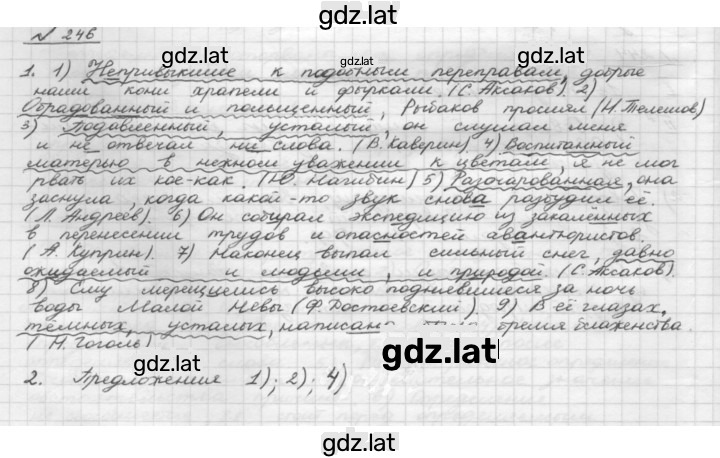 gdz.lat
№ 246
gdz.lat gdz.lat gdz.lat
1. 1) Непривыкшие к подобным переправам, добрые
наши кони храпели и фыркали. (С. Аксаков). 2)
Обрадованный и польщенный, Рыбаков просиял (Н. Телешов)
3) Подавленный, усталый, он слушал меня
и не отвечал ни слова. (В. Каверин) 4) Воспитанный
матерью в нежном уважении к цветам, я не мог
рвать их кое-как. (Ю. Нагибин) 5) Разочарованная, она
заснула, когда какой-то звук снова разбудил её.
(Л. Андреев). 6) Он собирал экспедицию из закалённых
в перенесении трудов и опасностей авантюристов.
(А. Куприн). 7) Наконец выпал сильный снег, давно
ожидаемый и людьми, и природой. (С. Аксаков).
8) Ему мерещились высоко поднявшиеся за ночь
воды Малой Невы (Ф. Достоевский). 9) В её глазах,
тёмных, усталых, написано бремя блаженства.
(Н. Гоголь)
gdz.lat
2. Предложения 1); 2); 4)
gdz.lat